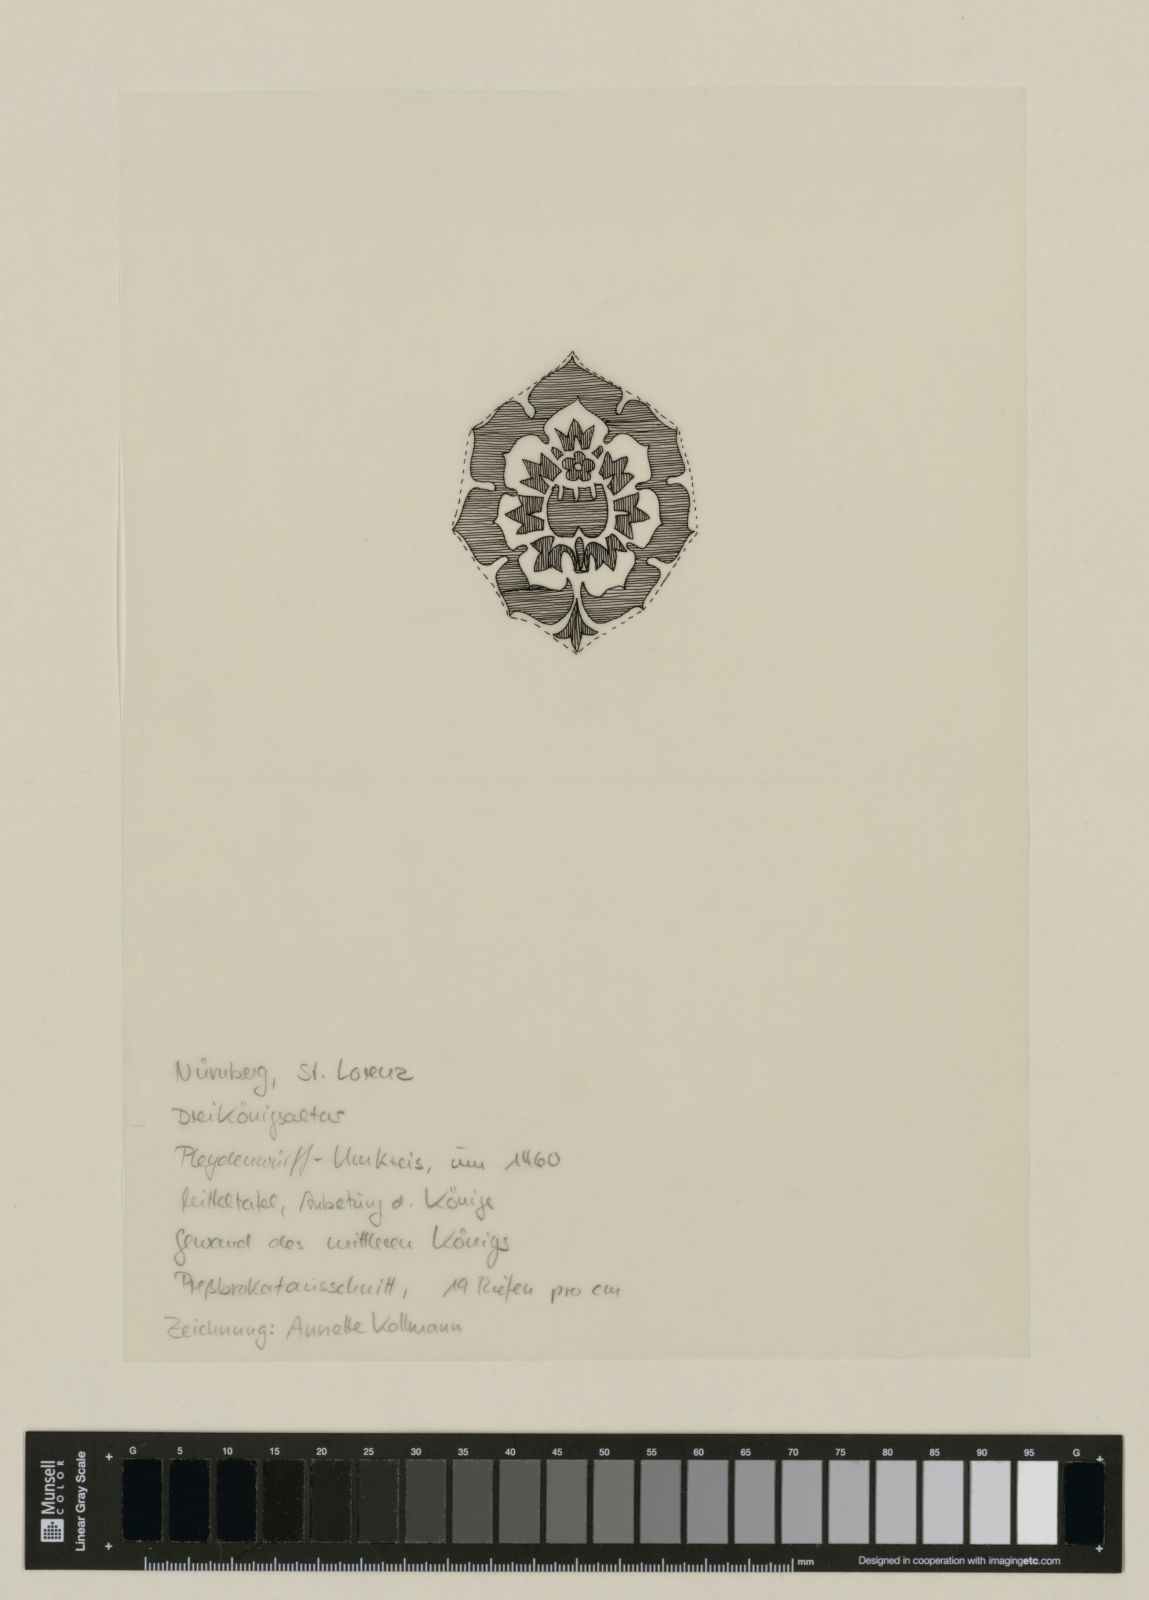 Nürnberg, St. Lorenz
Dreikönigsaltar
Pleydenwurff-Umkreis, um 1460
Mitteltafel, Anbetung d. Könige
Gewand des mittleren Königs
Preßbrokatausschnitt, 19 Riefen pro cm
Zeichnung: Annette Kollmann
Munsell
COLOR
Linear Gray Scale
G 5 10 15 20 25 30 35 40 45 50 55 60 65 70 75 80 85 90 95 G
mm
Designed in cooperation with imagingetc.com